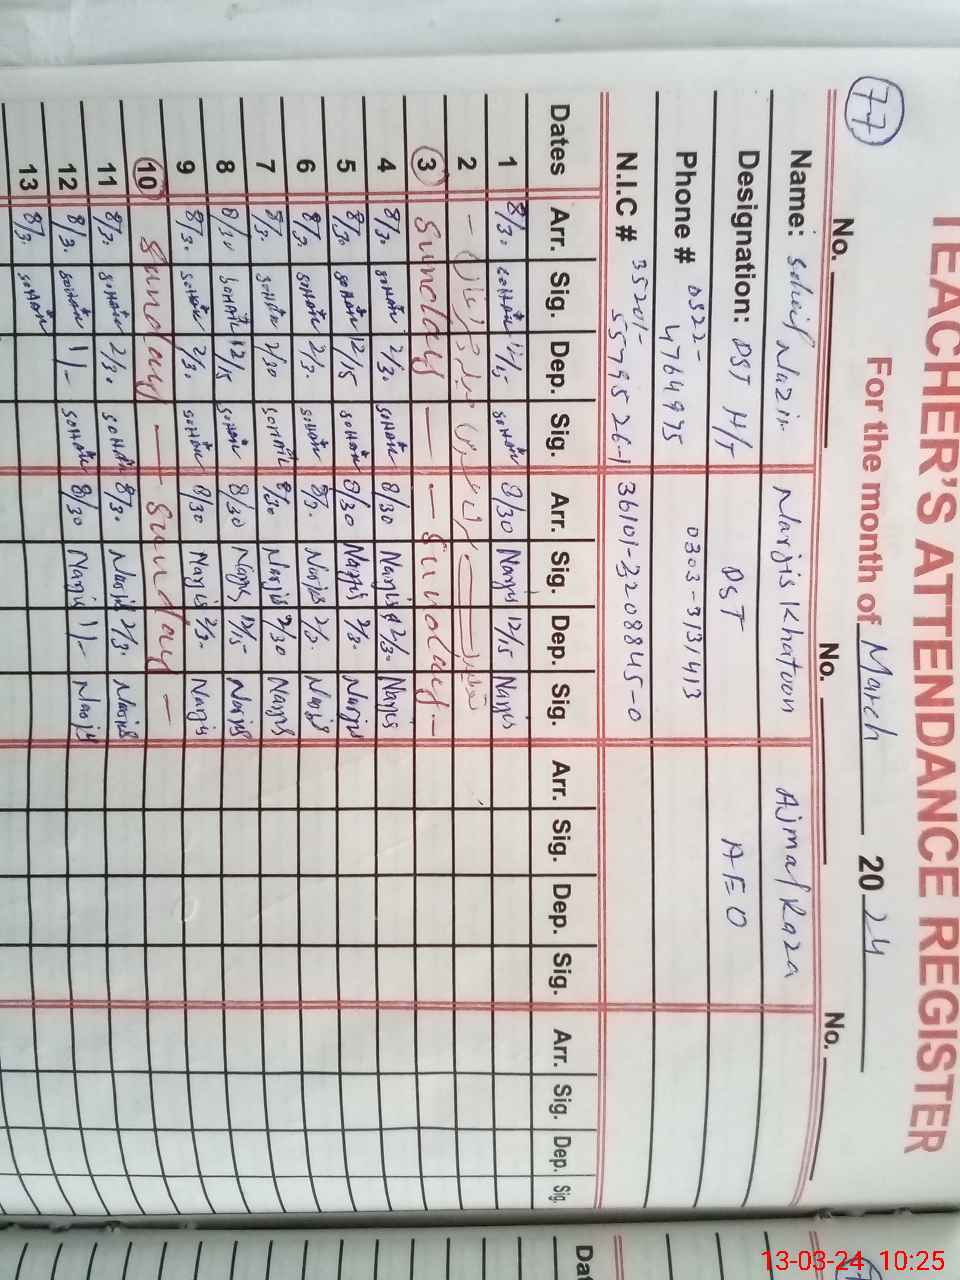 77
TEACHER'S ATTENDANCE REGISTER
For the month of March 2024
No. No. No.
Name: Nazir Narjis Khatoon Ajmal Raza
Designation: PST H/T PST AEO
Phone # 0322-4764975 0303-3131413
N.I.C # 35201-5579526-1 36101-2208845-0
Dates Arr. Sig. Dep. Sig. Arr. Sig. Dep. Sig. Arr. Sig. Dep. Sig. Arr. Sig. Dep. Sig.
1 8/30 SOHAIL 12/15 SOHAIL 8/30 Narjis 12/15 Narjis
2
3 Sunday — - Sunday -
4 8/30 SOHAIL 2/30 SOHAIL 8/30 Narjis 2/30 Narjis
5 8/30 SOHAIL 12/15 SOHAIL 8/30 Narjis 2/30 Narjis
6 8/30 SOHAIL 2/30 SOHAIL 8/30 Narjis 2/30 Narjis
7 8/30 SOHAIL 2/30 SOHAIL 8/30 Narjis 2/30 Narjis
8 8/30 SOHAIL 12/15 SOHAIL 8/30 Narjis 12/15 Narjis
9 8/30 SOHAIL 2/30 SOHAIL 8/30 Narjis 2/30 Narjis
10 Sunday — Sunday -
11 8/30 SOHAIL 2/30 SOHAIL 8/30 Narjis 2/30 Narjis
12 8/30 SOHAIL 1/- SOHAIL 8/30 Narjis 1/- Narjis
13 8/30 SOHAIL
Dat
13-03-24 10:25